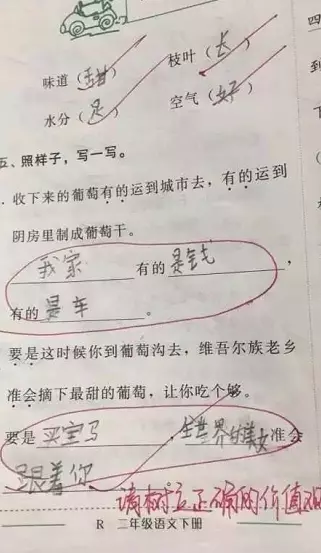 味道（甜） 枝叶（长）
水分（足） 空气（好）
五、照样子，写一写。
收下来的葡萄有的运到城市去，有的运到
阴房里制成葡萄干。
我家有的是钱，
有的是车。
要是这时候你到葡萄沟去，维吾尔族老乡
准会摘下最甜的葡萄，让你吃个够。
要是买宝马，全世界的美女准会
跟着你
请树立正确的价值观
R 二年级语文下册
四
到